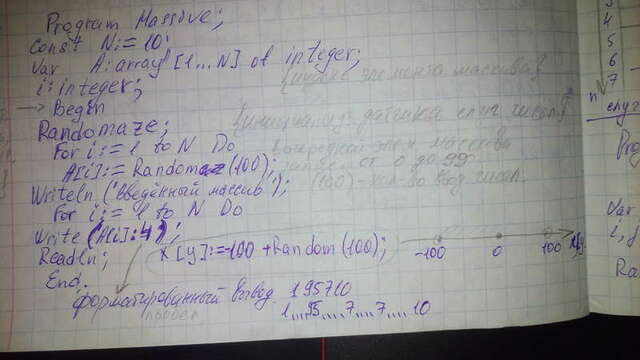 Program Massive;
Const N:=10;
Var A:array [1...N] of integer; {индекс элемента массива}
i:integer;
Begin {инициализ. датчика случ. чисел}
Randomaze;
For i:=1 to N Do очередной элем. массива
A[i]:=Randomaz(100); от 0 до 99
Writeln ('введённый массив'); (100) - кол-во ввод. чисел.
For i:=1 to N Do
Write (A[i]:4);
Readln; X[y]:=-100+Random(100); -100 0 100
End.
форматированный вывод 195710
пробел 1....95....7....7....10
3
4
5
6
7
n
случ
Pro
Var
i,j
Ra